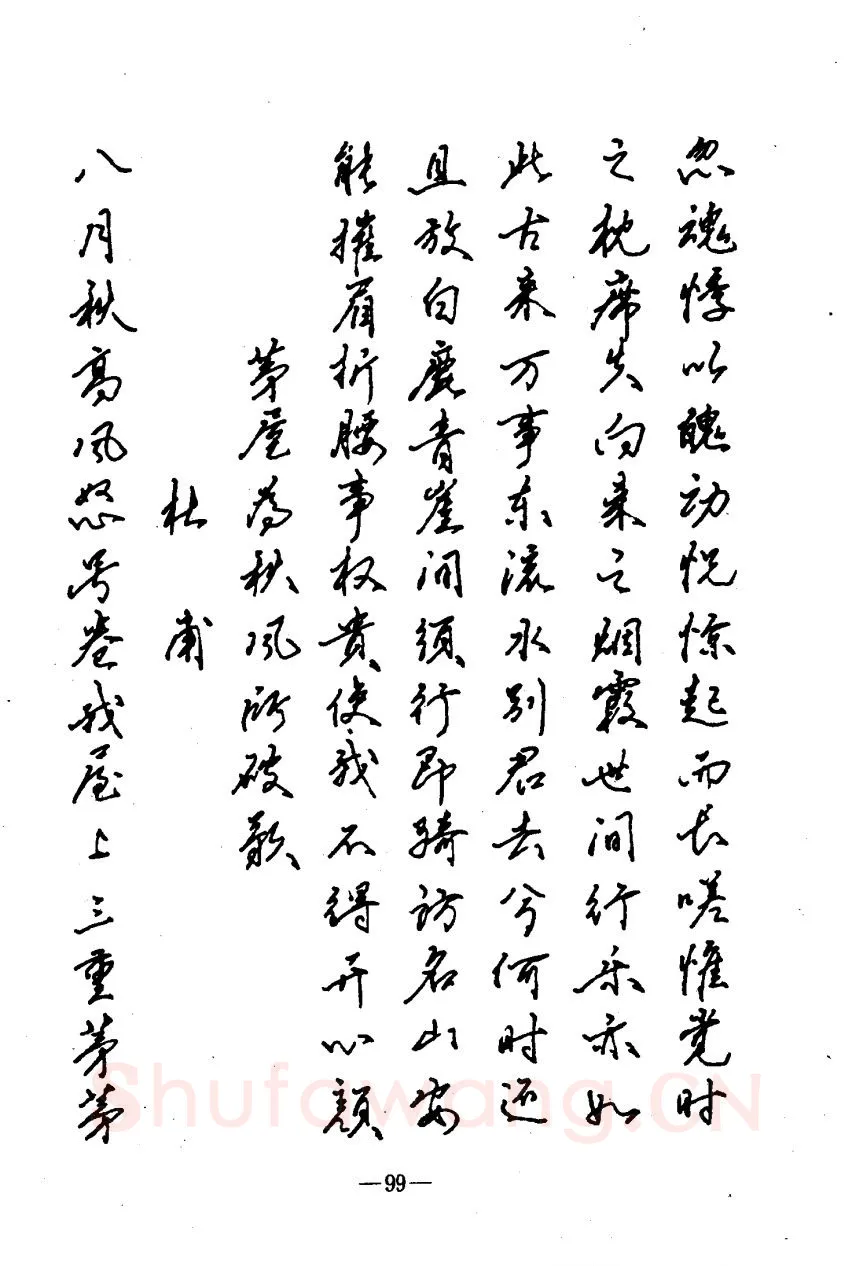 忽魂悸以魄动恍惊起而长嗟惟觉时
之枕席失向来之烟霞世间行乐亦如
此古来万事东流水别君去兮何时还
且放白鹿青崖间须行即骑访名山安
能摧眉折腰事权贵使我不得开心颜
茅屋为秋风所破歌
杜甫
八月秋高风怒号卷我屋上三重茅茅
—99—
Shufawang.CN